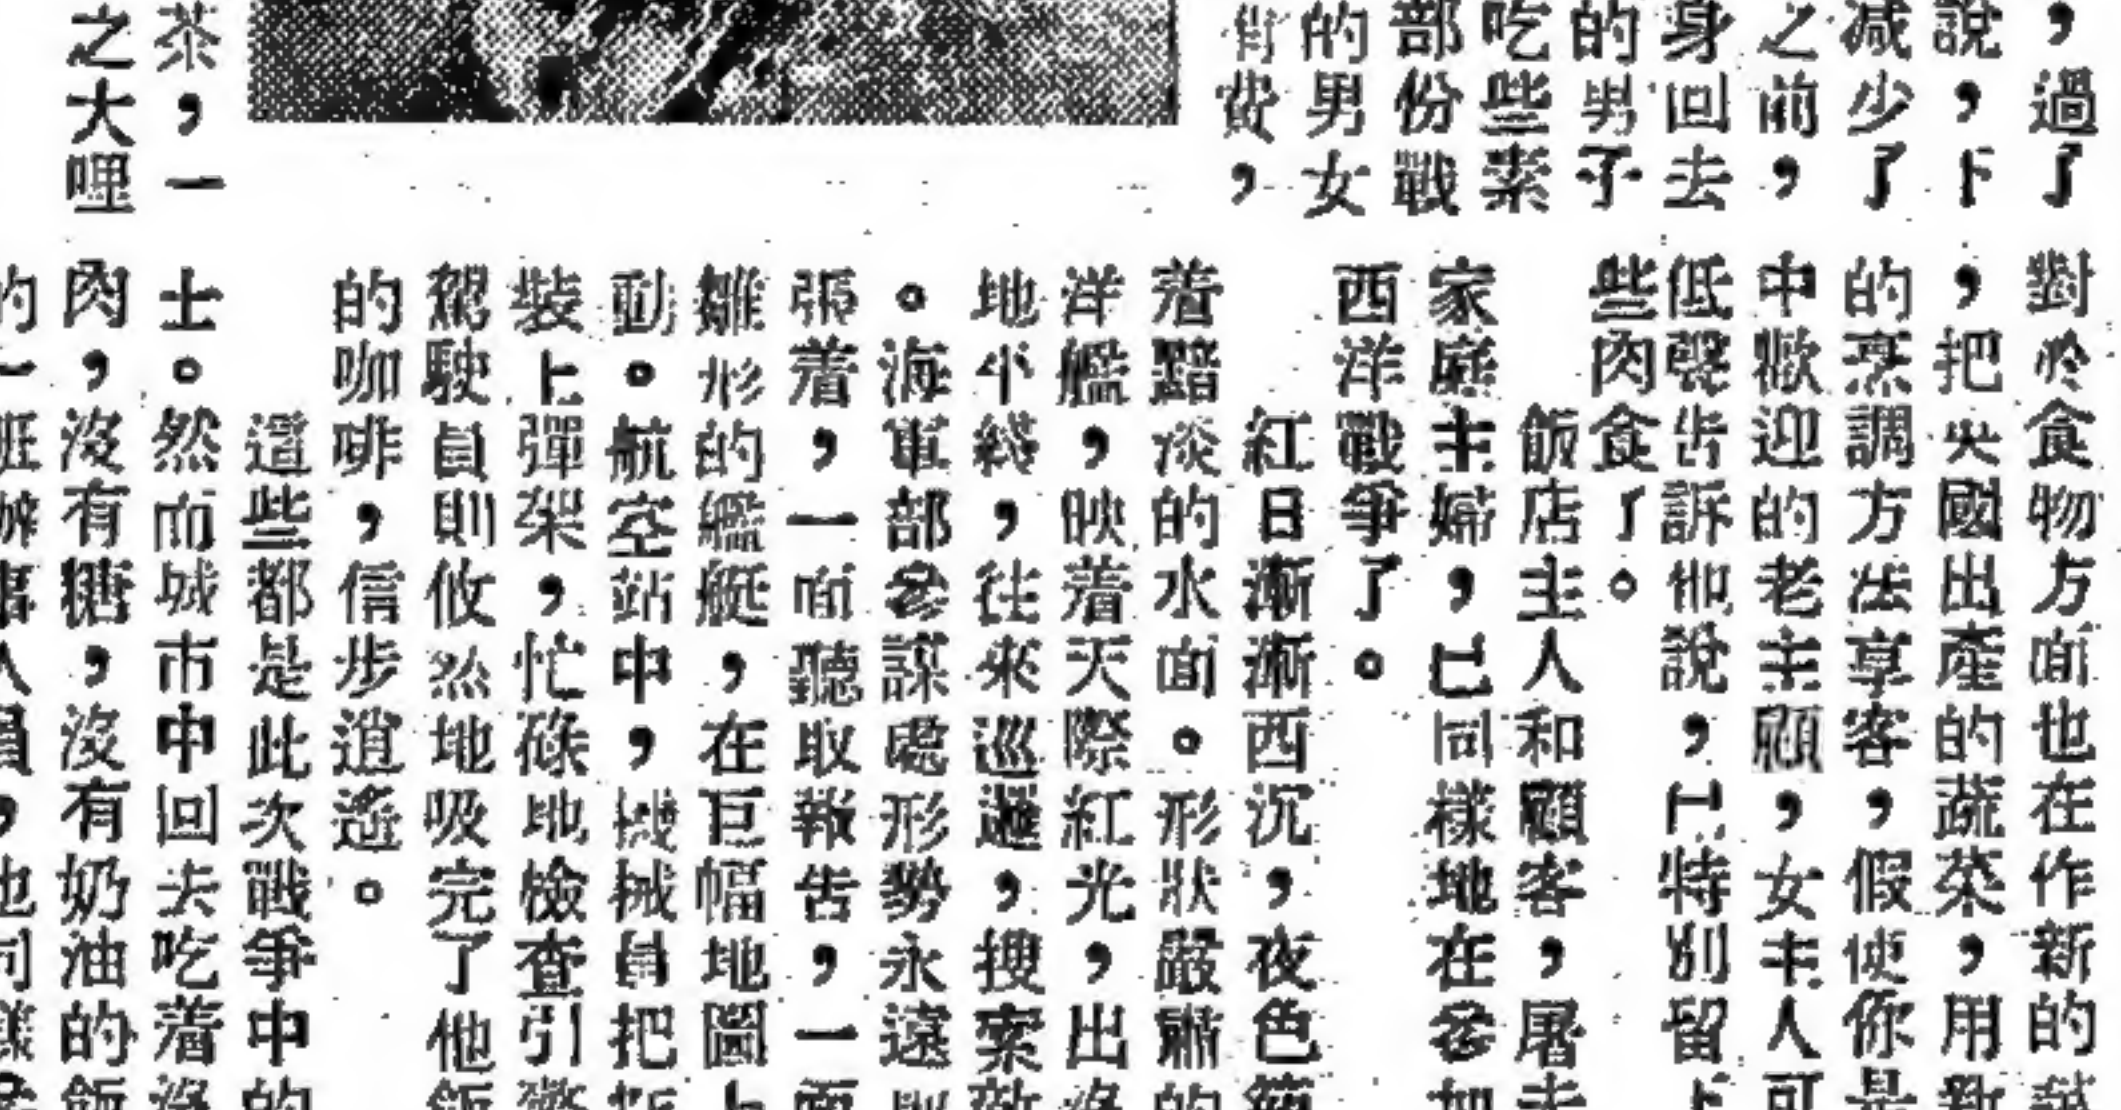 ，過了
說，下
减少了
之前，
身回去
的男子
吃些素
部份戰
的男女
費，
茶，一
之大哩
對於食物方面也在作新的
，把英國出產的蔬菜，用新
的烹調方法享客，假使你是
中歡迎的老主顧，女主人可
低聲告訴他說，已特別留
些肉食了。
飯店主人和顧客，屠夫
家庭主婦，已同樣地在參加
西洋戰爭了。
紅日漸漸西沉，夜色籠
着黯淡的水面。形狀嚴肅的
洋艦，映着天際紅光，出
地平綫，往來巡邏，搜索敵
。海軍部參謀處形勢永遠
張着，一面聽取報告，一面
雛形的艦艇，在巨幅地圖上
動。航空站中，機械員把
裝上彈架，忙碌地檢查引
駕駛員則攸然地吸完了他飯
的咖啡，信步逍遙。
這些都是此次戰爭中的
士。然而城市中回去吃着沒
肉，沒有糖，沒有奶油的飯
的一班辦事人員，他同樣